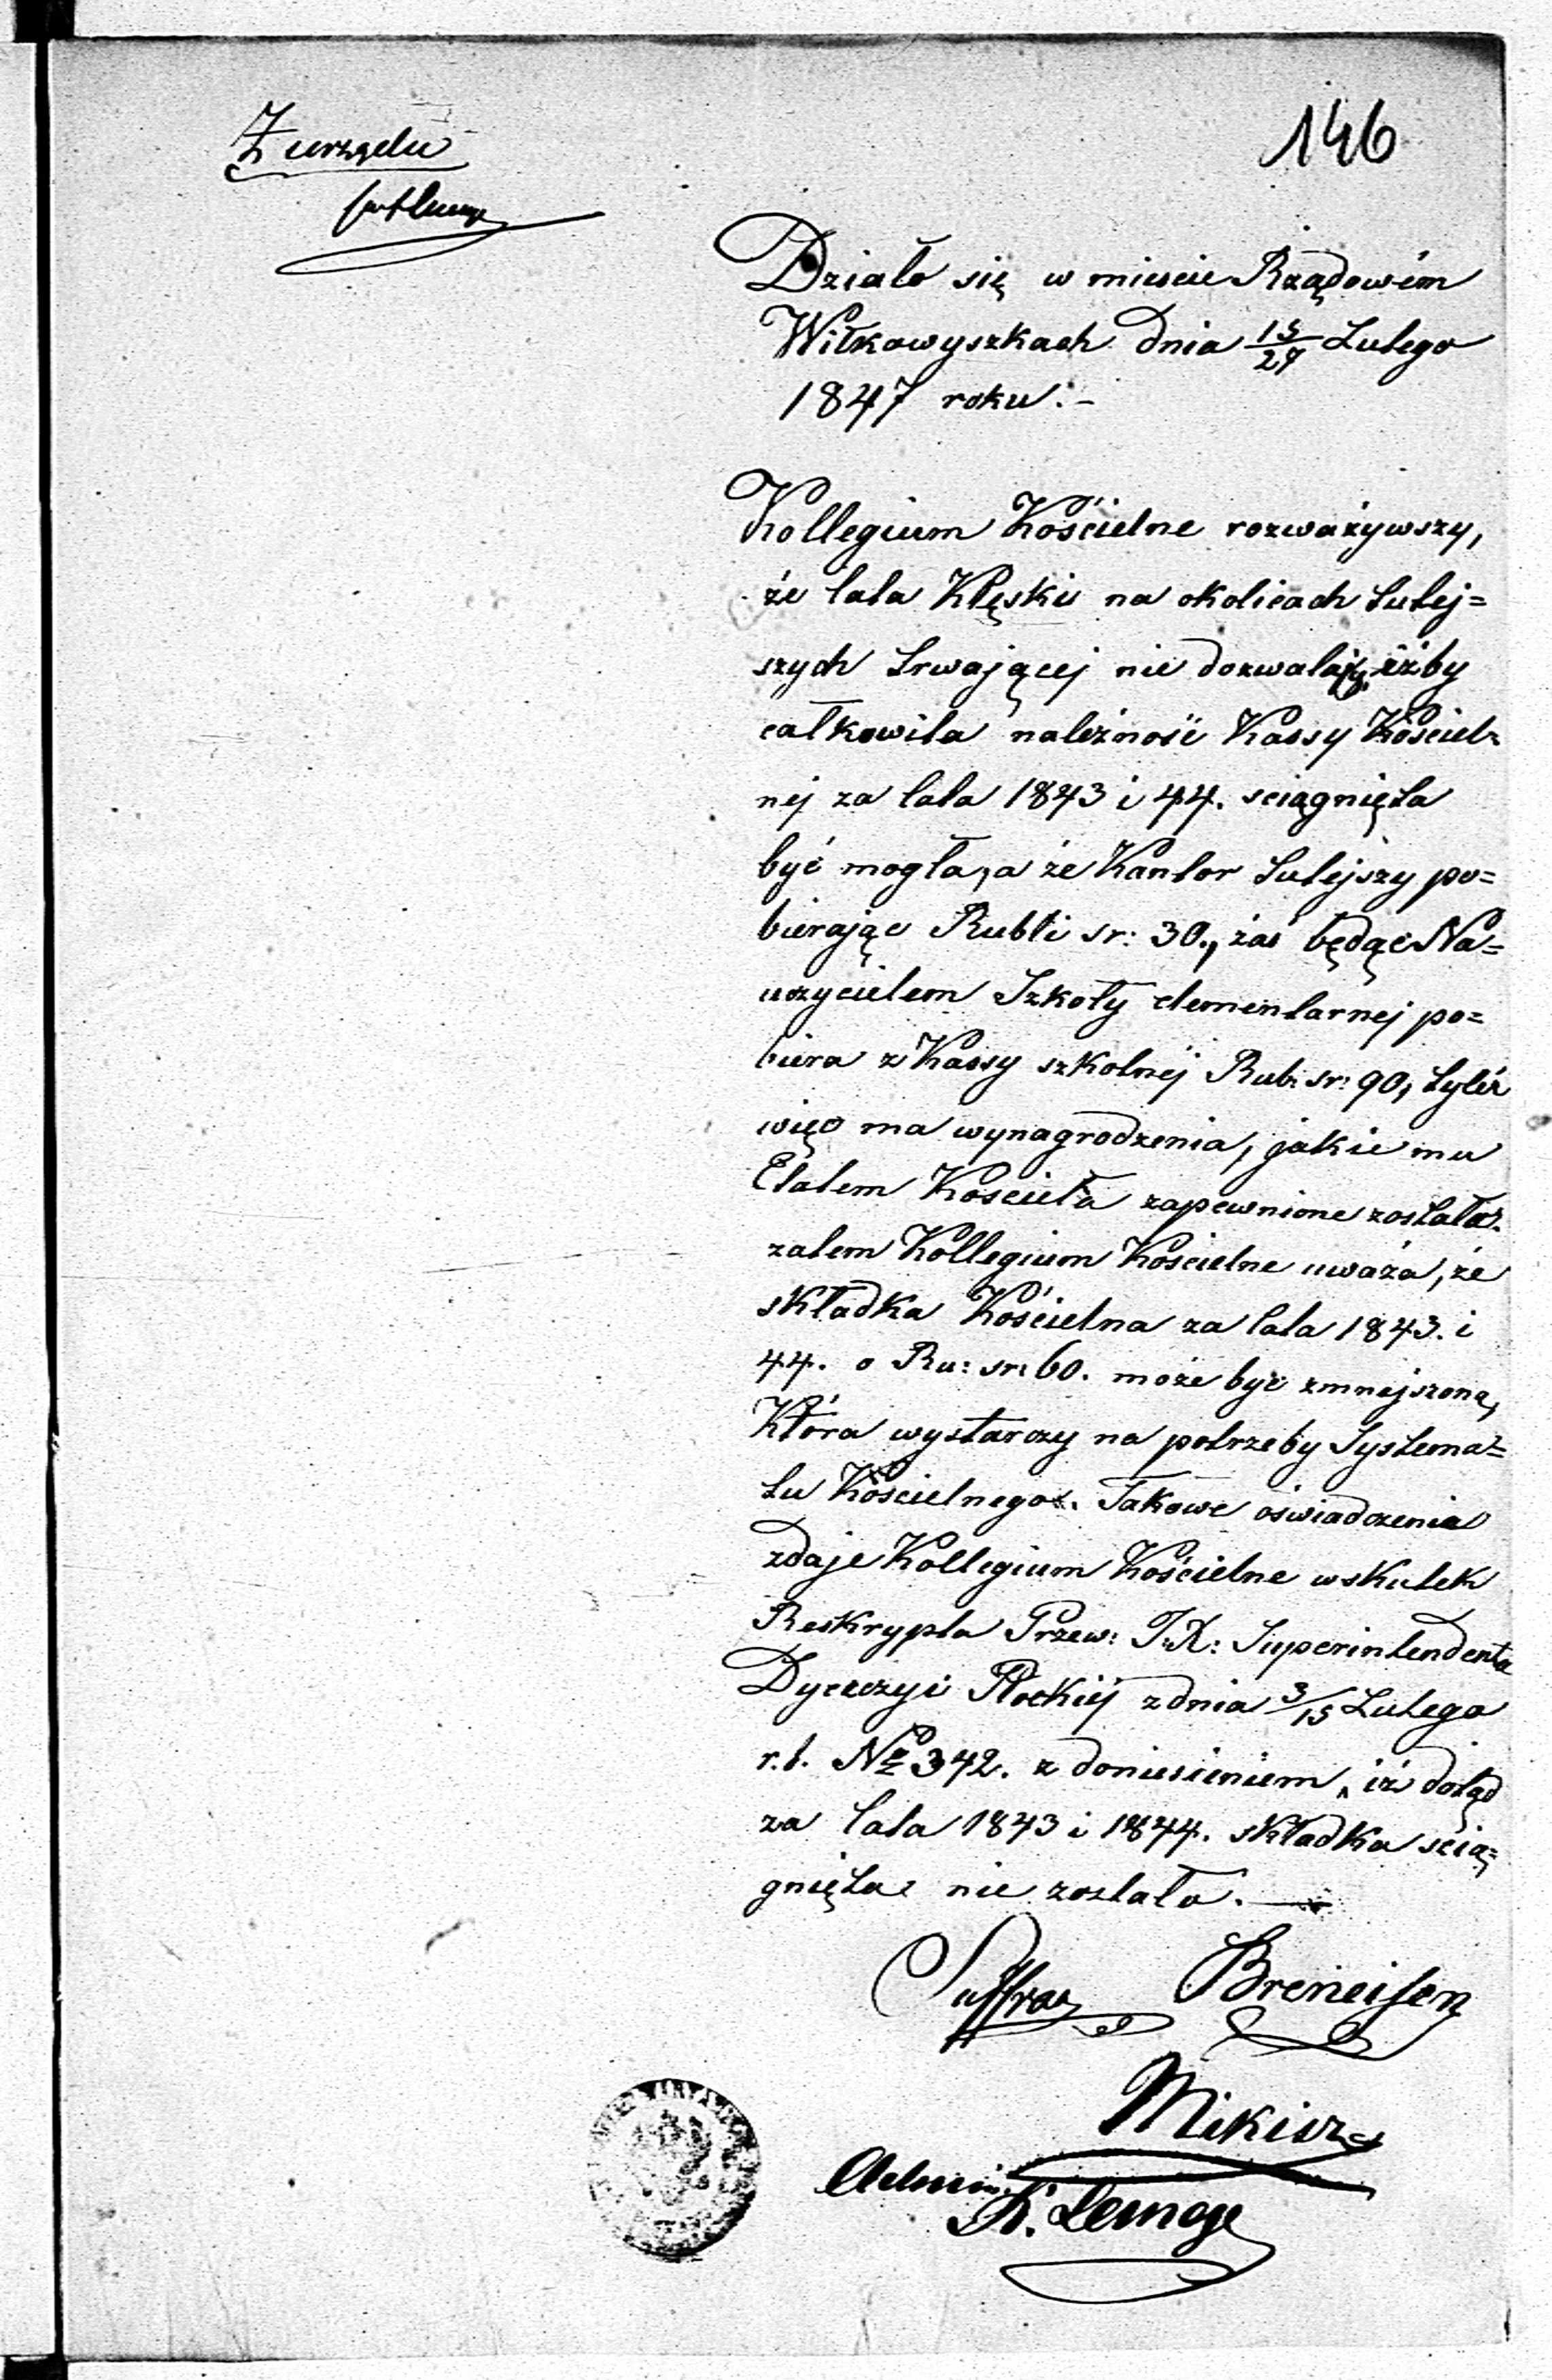 Z urzędu
146
Działo się w mieście Rządowém
Wiłkowyszkach dnia 15/27 Lutego
1847 roku. -
Kollegium Kościelne rozważywszy,
że lata Klęski na okolicach tutej=
szych trwającej nie dozwalają, iżby
całkowita należność Kassy Kościel=
nej za lata 1843 i 44. sciągnięta
być mogła, a że Kantor tutejszy po=
bierając Rubli sr: 30., zaś będąc Na=
uczycielem Szkoły elementarnej po=
biera z Kassy szkolnéj Rub: sr: 90, tyleż
więc ma wynagrodzenia, jakie mu
Etatem Kościoła zapewnione zostało.
zatem Kollegium Kościelne uważa, że
składka Kościelna za lata 1843. i
44. o Ru: sr: 60. może być zmnejszoną,
Która wystarczy na potrzeby Systema=
tu Kościelnego. Takowe oświadczenie
zdaje Kollegium Kościelne w skutek
Reskrypta Przew: J.X: Superintendenta
Dyecezyi Płockiéj z dnia 3/15 Lutego
r.b. No 342. z doniesieniem, iż dotąd
za lata 1843 i 1844. składka ścią=
gnięta nie została. —
Breneisen
Mikisz
Admin.
K. Lemoge